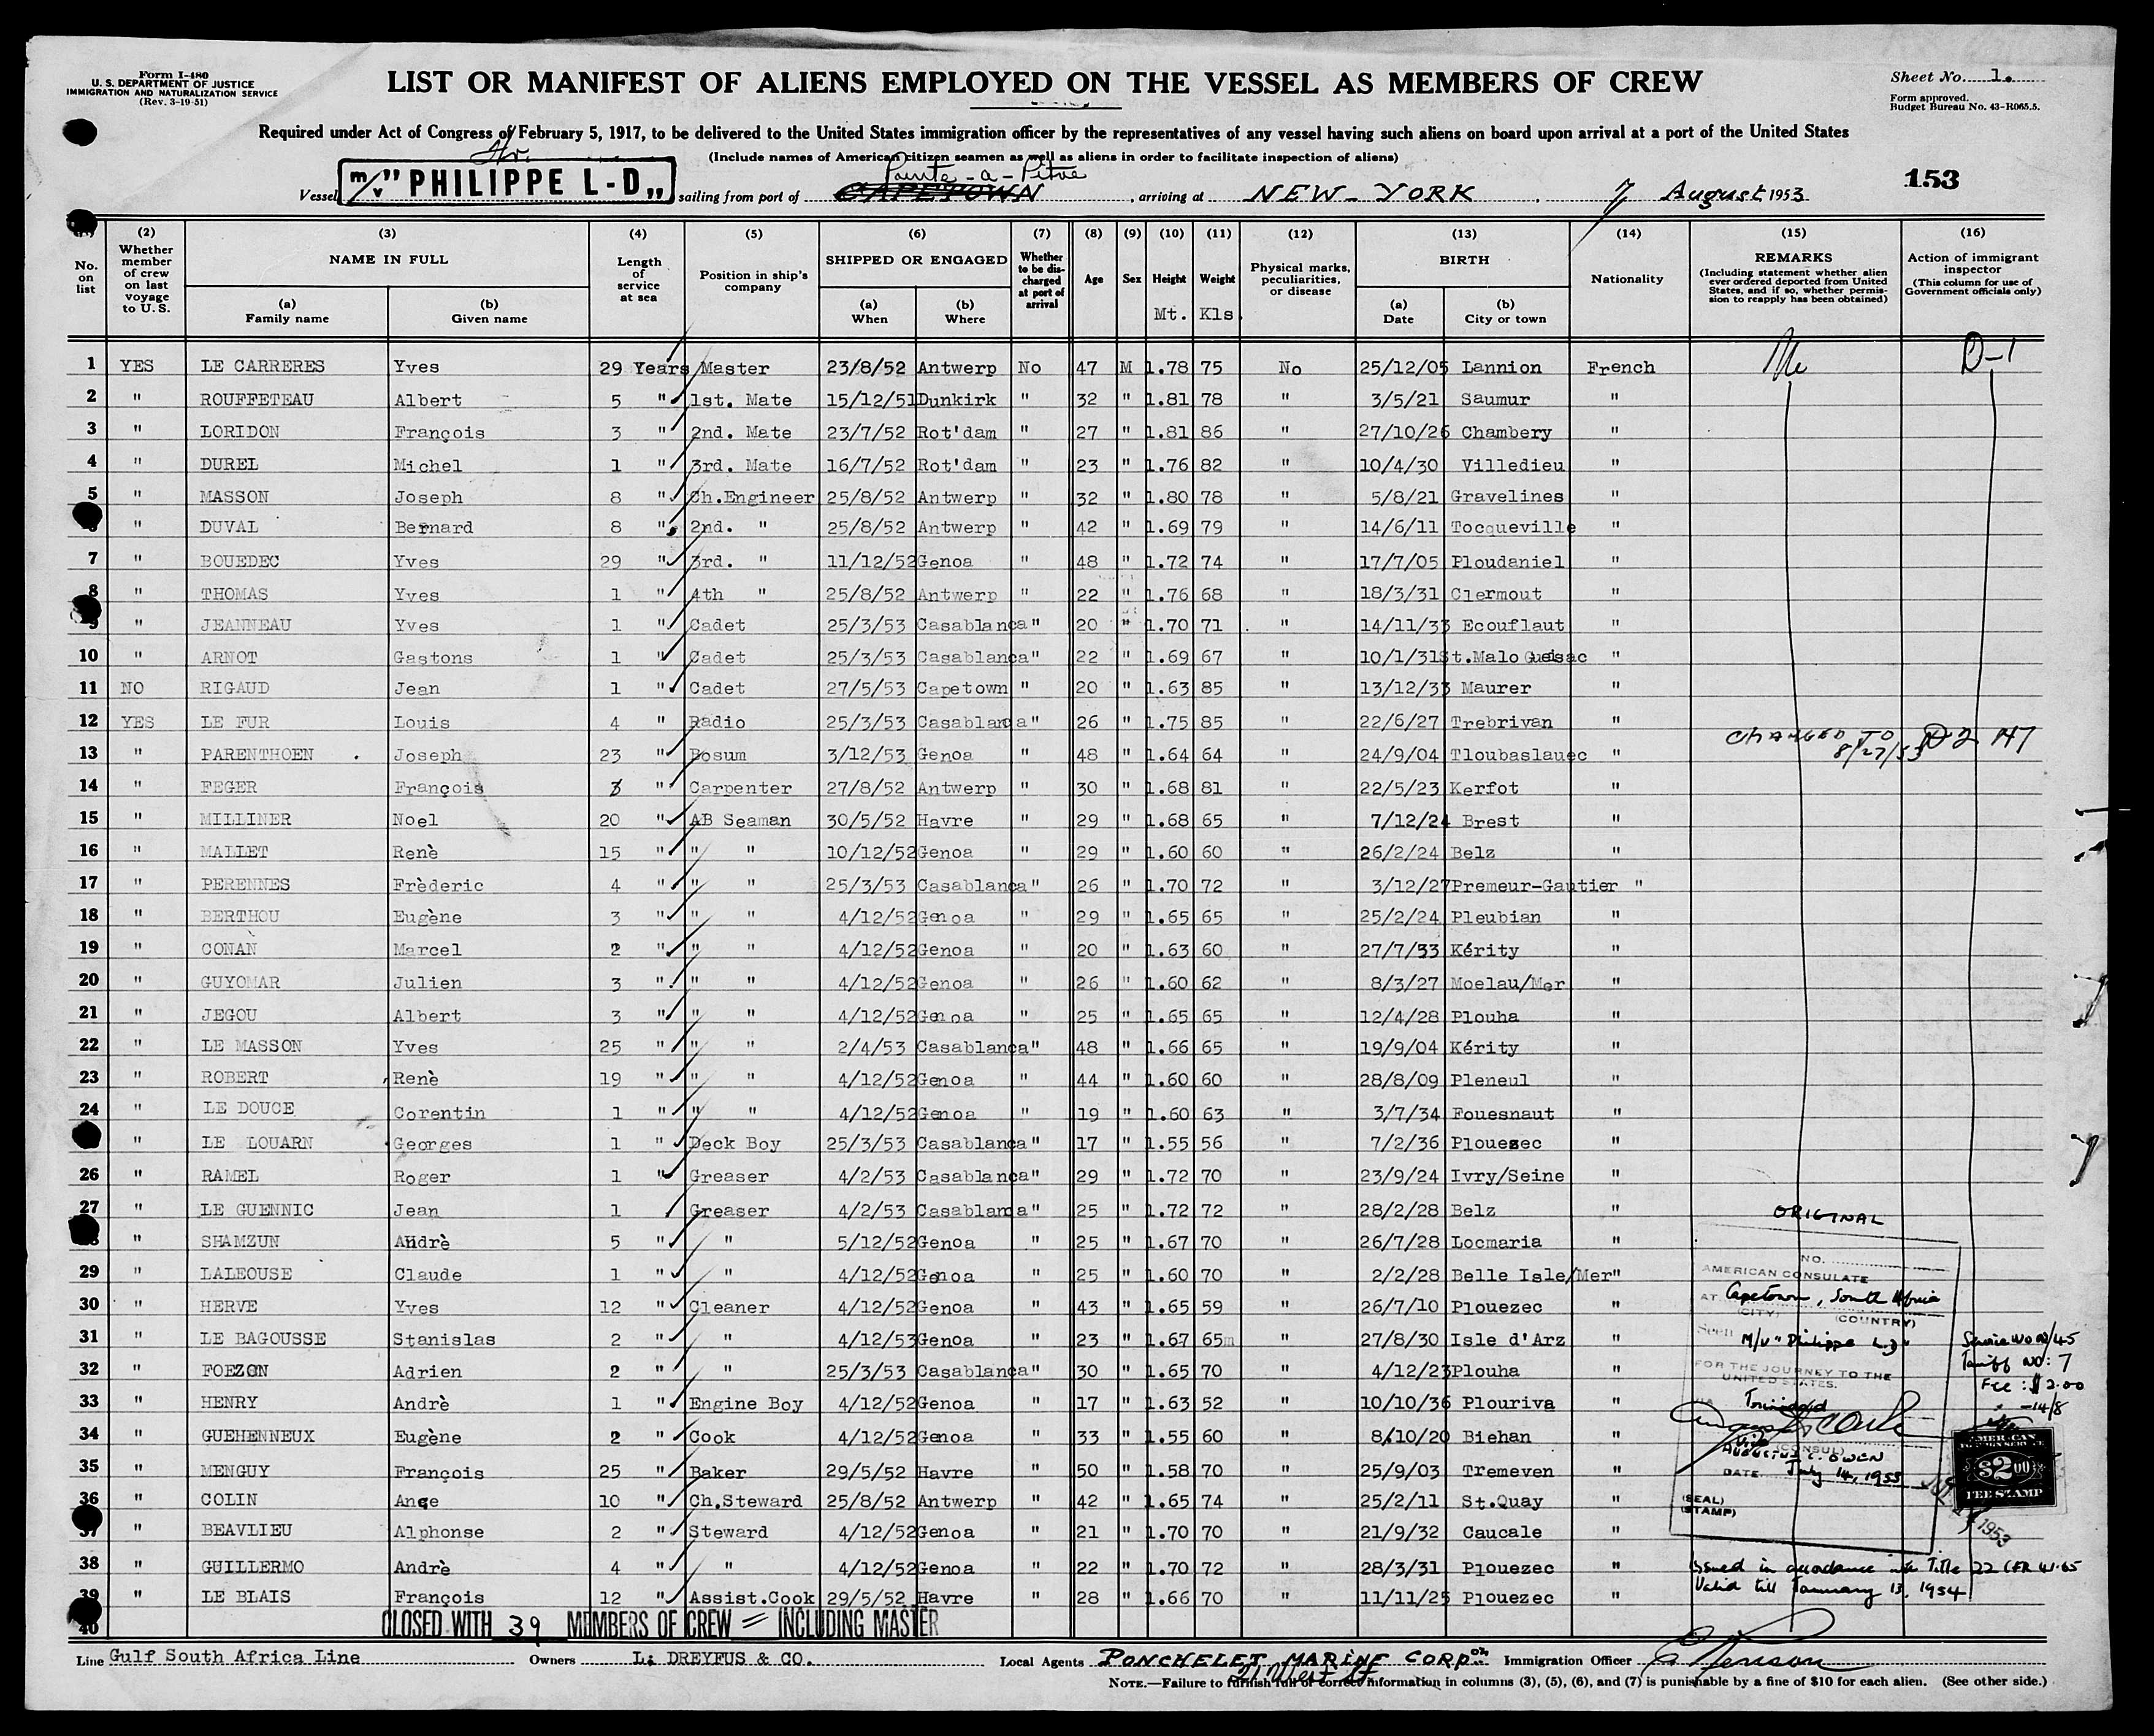 Form I-480
U. S. DEPARTMENT OF JUSTICE
IMMIGRATION AND NATURALIZATION SERVICE
(Rev. 3-19-51)
LIST OR MANIFEST OF ALIENS EMPLOYED ON THE VESSEL AS MEMBERS OF CREW
Sheet No. 1.
Form approved.
Budget Bureau No. 43-R065.5.
Required under Act of Congress of February 5, 1917, to be delivered to the United States immigration officer by the representatives of any vessel having such aliens on board upon arrival at a port of the United States
(Include names of American citizen seamen as well as aliens in order to facilitate inspection of aliens)
Fr.
Pointe-a-Pitre
153
Vessel m/v "PHILIPPE L-D" sailing from port of CAPETOWN, arriving at NEW-YORK, 7 August 1953
(2) (3) (4) (5) (6) (7) (8) (9) (10) (11) (12) (13) (14) (15) (16)
No. on list
Whether member of crew on last voyage to U. S.
NAME IN FULL
(a) Family name
(b) Given name
Length of service at sea
Position in ship's company
SHIPPED OR ENGAGED
(a) When
(b) Where
Whether to be discharged at port of arrival
Age
Sex
Height Mt.
Weight Kls.
Physical marks, peculiarities, or disease
BIRTH
(a) Date
(b) City or town
Nationality
REMARKS
(Including statement whether alien ever ordered deported from United States, and if so, whether permission to reapply has been obtained)
Action of immigrant inspector
(This column for use of Government officials only)
1 YES LE CARRERES Yves 29 Years Master 23/8/52 Antwerp No 47 M 1.78 75 No 25/12/05 Lannion French D-1
2 " ROUFFETEAU Albert 5 " 1st. Mate 15/12/51 Dunkirk " 32 " 1.81 78 " 3/5/21 Saumur "
3 " LORIDON François 3 " 2nd. Mate 23/7/52 Rot'dam " 27 " 1.81 86 " 27/10/26 Chambery "
4 " DUREL Michel 1 " 3rd. Mate 16/7/52 Rot'dam " 23 " 1.76 82 " 10/4/30 Villedieu "
5 " MASSON Joseph 8 " Ch.Engineer 25/8/52 Antwerp " 32 " 1.80 78 " 5/8/21 Gravelines "
" DUVAL Bernard 8 " 2nd. " 25/8/52 Antwerp " 42 " 1.69 79 " 14/6/11 Tocqueville "
7 " BOUEDEC Yves 29 " 3rd. " 11/12/52 Genoa " 48 " 1.72 74 " 17/7/05 Ploudaniel "
8 " THOMAS Yves 1 " 4th " 25/8/52 Antwerp " 22 " 1.76 68 " 18/3/31 Clermout "
9 " JEANNEAU Yves 1 " Cadet 25/3/53 Casablanca " 20 " 1.70 71 " 14/11/33 Ecouflaut "
10 " ARNOT Gastons 1 " Cadet 25/3/53 Casablanca " 22 " 1.69 67 " 10/1/31 St.Malo "
11 NO RIGAUD Jean 1 " Cadet 27/5/53 Capetown " 20 " 1.63 85 " 13/12/33 Maurer "
12 YES LE FUR Louis 4 " Radio 25/3/53 Casablanca " 26 " 1.75 85 " 22/6/27 Trebrivan "
13 " PARENTHOEN Joseph 23 " Bosum 3/12/53 Genoa " 48 " 1.64 64 " 24/9/04 Tloubaslauec " CHANGED TO D2 8/27/53
14 " FEGER François 3 " Carpenter 27/8/52 Antwerp " 30 " 1.68 81 " 22/5/23 Kerfot "
15 " MILLINER Noel 20 " AB Seaman 30/5/52 Havre " 29 " 1.68 65 " 7/12/24 Brest "
16 " MALLET Renè 15 " " " 10/12/52 Genoa " 29 " 1.60 60 " 26/2/24 Belz "
17 " PERENNES Frèderic 4 " " " 25/3/53 Casablanca " 26 " 1.70 72 " 3/12/27 Premeur-Gautier "
18 " BERTHOU Eugène 3 " " " 4/12/52 Genoa " 29 " 1.65 65 " 25/2/24 Pleubian "
19 " CONAN Marcel 2 " " " 4/12/52 Genoa " 20 " 1.63 60 " 27/7/33 Kérity "
20 " GUYOMAR Julien 3 " " " 4/12/52 Genoa " 26 " 1.60 62 " 8/3/27 Moelau/Mer "
21 " JEGOU Albert 3 " " " 4/12/52 Genoa " 25 " 1.65 65 " 12/4/28 Plouha "
22 " LE MASSON Yves 25 " " " 2/4/53 Casablanca " 48 " 1.66 65 " 19/9/04 Kérity "
23 " ROBERT Renè 19 " " " 4/12/52 Genoa " 44 " 1.60 60 " 28/8/09 Pleneul "
24 " LE DOUCE Corentin 1 " " " 4/12/52 Genoa " 19 " 1.60 63 " 3/7/34 Fouesnaut "
" LE LOUARN Georges 1 " Deck Boy 25/3/53 Casablanca " 17 " 1.55 56 " 7/2/36 Plouezec "
26 " RAMEL Roger 1 " Greaser 4/2/53 Casablanca " 29 " 1.72 70 " 23/9/24 Ivry/Seine "
27 " LE GUENNIC Jean 1 Greaser 4/2/53 Casablanca " 25 " 1.72 72 " 28/2/28 Belz "
" SHAMZUN Andrè 5 " " 5/12/52 Genoa " 25 " 1.67 70 " 26/7/28 Locmaria "
29 " LALEOUSE Claude 1 " " 4/12/52 Genoa " 25 " 1.60 70 " 2/2/28 Belle Isle/Mer "
30 " HERVE Yves 12 " Cleaner 4/12/52 Genoa " 43 " 1.65 59 " 26/7/10 Plouezec "
31 " LE BAGOUSSE Stanislas 2 " " 4/12/53 Genoa " 23 " 1.67 65m " 27/8/30 Isle d'Arz "
32 " Adrien 2 " " 25/3/53 Casablanca " 30 " 1.65 70 " 4/12/23 Plouha "
33 " HENRY Andrè 1 " Engine Boy 4/12/52 Genoa " 17 " 1.63 52 " 10/10/36 Plouriva "
34 " GUEHENNEUX Eugène 2 " Cook 4/12/52 Genoa " 33 " 1.55 60 " 8/10/20 Biehan "
35 " MENGUY François 25 " Baker 29/5/52 Havre " 50 " 1.58 70 " 25/9/03 Tremeven "
36 " COLIN Ange 10 " Ch.Steward 25/8/52 Antwerp " 42 " 1.65 74 " 25/2/11 St.Quay "
37 " BEAVLIEU Alphonse 2 " Steward 4/12/52 Genoa " 21 " 1.70 70 " 21/9/32 Caucale "
38 " GUILLERMO Andrè 4 " " 4/12/52 Genoa " 22 " 1.70 72 " 28/3/31 Plouezec "
39 " LE BLAIS François 12 " Assist.Cook 29/5/52 Havre " 28 " 1.66 70 " 11/11/25 Plouezec "
40 CLOSED WITH 39 MEMBERS OF CREW = INCLUDING MASTER
ORIGINAL
NO.
AMERICAN CONSULATE
AT Capetown, South Africa
(CITY) (COUNTRY)
Seen M/V "Philippe L.D"
FOR THE JOURNEY TO THE
UNITED STATES.
VIA Trinidad
Vice (CONSUL)
AUGUSTUS C. OWEN
DATE July 14, 1953
(SEAL)
(STAMP)
Service No
Tariff No: 7
Fee: $2.00
AMERICAN
$2.00
FEE STAMP
1953
Issued in accordance with Title 22 CFR 41.65
Valid till January 13, 1954
Line Gulf South Africa Line Owners L. DREYFUS & CO. Local Agents PONCHELET MARINE CORPon Immigration Officer
21 West St
NOTE.—Failure to furnish full or correct information in columns (3), (5), (6), and (7) is punishable by a fine of $10 for each alien. (See other side.)